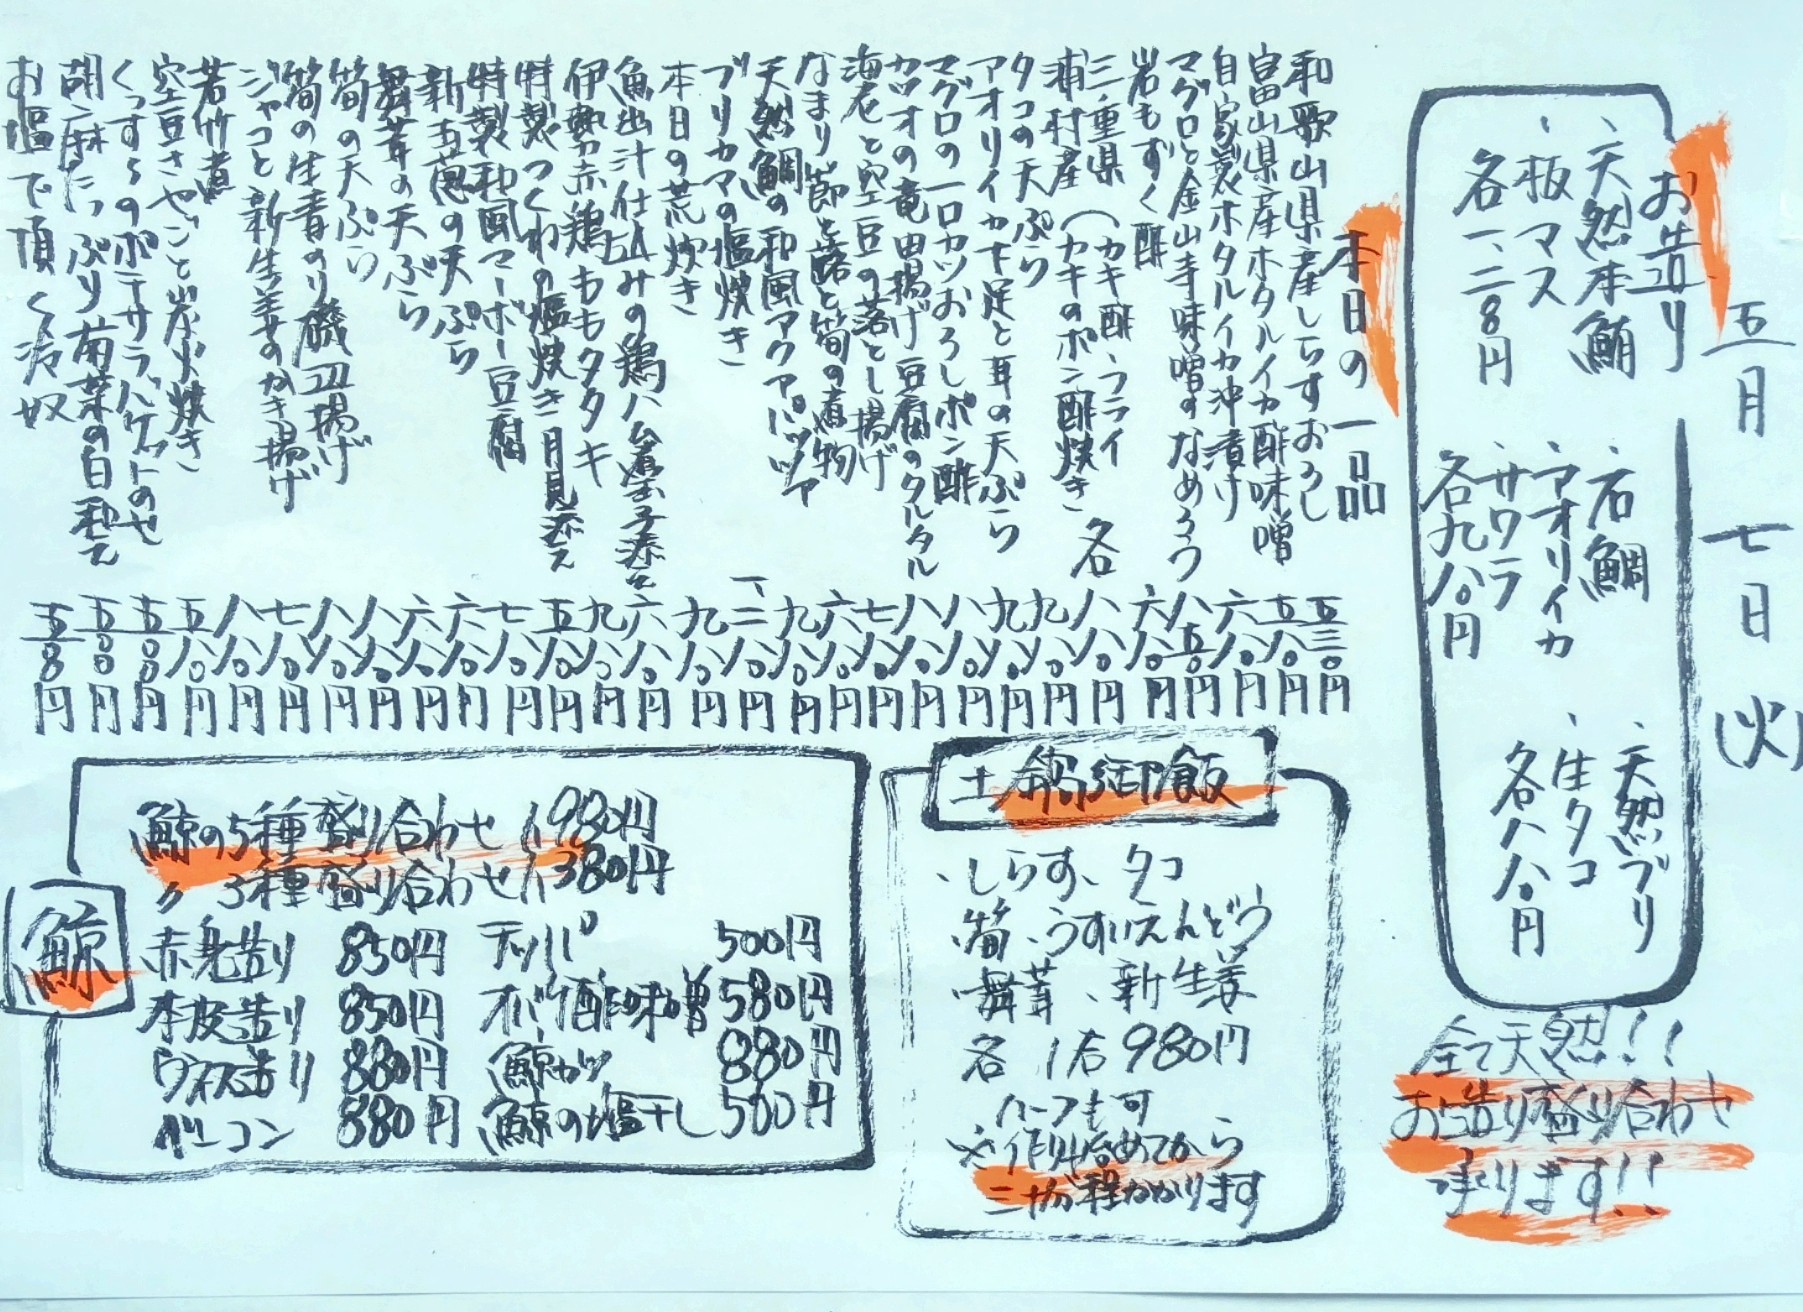 五月七日(火)
お造り
、天然本鮪
、板マス
各一、二八〇円
、石鯛
、アオリイカ
、サワラ
各九八〇円
、天然ブリ
、生タコ
各八八〇円
全て天然!!
お造り盛り合わせ
承ります!!
本日の一品
和歌山県産しらすおろし 五三〇円
富山県産ホタルイカ酢味噌 五八〇円
自家製ホタルイカ沖漬け 六八〇円
マグロと金山寺味噌のなめろう 八五〇円
岩もずく酢 六八〇円
三重県(カキ酢、フライ
浦村産(カキのポン酢焼き 各 八八〇円
タコの天ぷら 九八〇円
アオリイカ下足と耳の天ぷら 九八〇円
マグロの一口カツおろしポン酢 八八〇円
カツオの竜田揚げ豆腐のタルタル 八八〇円
海老と空豆の落とし揚げ 七八〇円
なまり節と蕗と筍の煮物 六八〇円
天然鯛の和風アクアパッツァ 九八〇円
ブリカマの塩焼き 一、二八〇円
本日の荒炊き 九八〇円
魚出汁仕込みの鶏ハム煮玉子添え 六八〇円
伊勢赤鶏ももタタキ 九八〇円
特製つくねの塩焼き月見添え 五八〇円
特製和風マーボー豆腐 七八〇円
新玉葱の天ぷら 六八〇円
舞茸の天ぷら 六八〇円
筍の天ぷら 八八〇円
筍の生青のり磯辺揚げ 八八〇円
ジャコと新生姜のかき揚げ 七八〇円
若竹煮 八八〇円
空豆さやごと炭火焼き 五八〇円
くっすものポテサラバケットのせ 五〇〇円
胡麻たっぷり菊菜の白和え 五〇〇円
お塩で頂く冷奴 五八〇円
土鍋御飯
、しらす、タコ
、筍、うすいえんどう
、舞茸、新生姜
各 1合980円
ハーフも可
※作り始めてから
三十分程かかります
鯨
鯨の5種盛り合わせ 1,980円
〃 3種盛り合わせ 1,380円
赤身造り 850円 テッパ 500円
本皮造り 850円 オバケ酢味噌 580円
ウネス造り 880円 鯨カツ 880円
ベーコン 880円 鯨の塩干し 500円